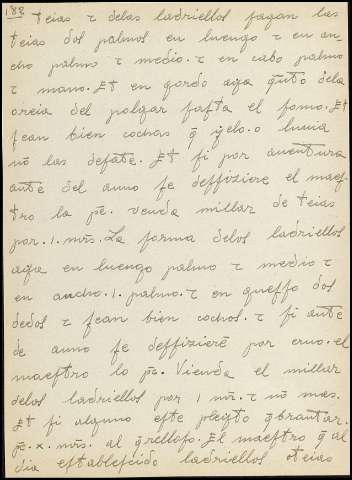 182
teias τ delas ladriellos fagan las
teias dos palmos en luengo τ en an
cho palmo τ medio. τ en cabo palmo
τ mano. Et en gordo aya q̃nto dela
oreia del polgar fasta el somo. Et
sean bien cochas q̃ yelo o lluuia
nõ las desate. Et si por auentura
ante del anno se deffiziere el maes
tro lo pe. venda millar de teias
por .1. mr̃s. La forma delos ladriellos
aya en luengo palmo τ medio τ
en ancho .1. palmo. τ en guesso dos
dedos τ sean bien cochos. τ si ante
de anno se deffizierẽ por cruo. el
maestro lo pe. Vienda el millar
delos ladriellos por 1 mr̃. τ nõ mas.
Et si alguno este pleyto q̃brantar.
pe. x. mr̃s. al q̃relloso. El maestro q̃ al
dia establescido ladriellos oteias